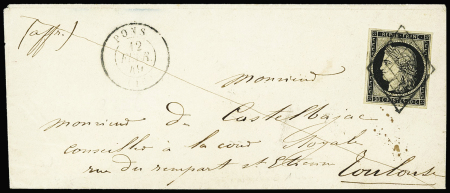 (affr.)
PONS
12
FEV.
49
REPUB. FRANC.
monsieur
monsieur de Castelbajac
conseiller à la cour Royale
rue du rempart st Etienne Toulouse